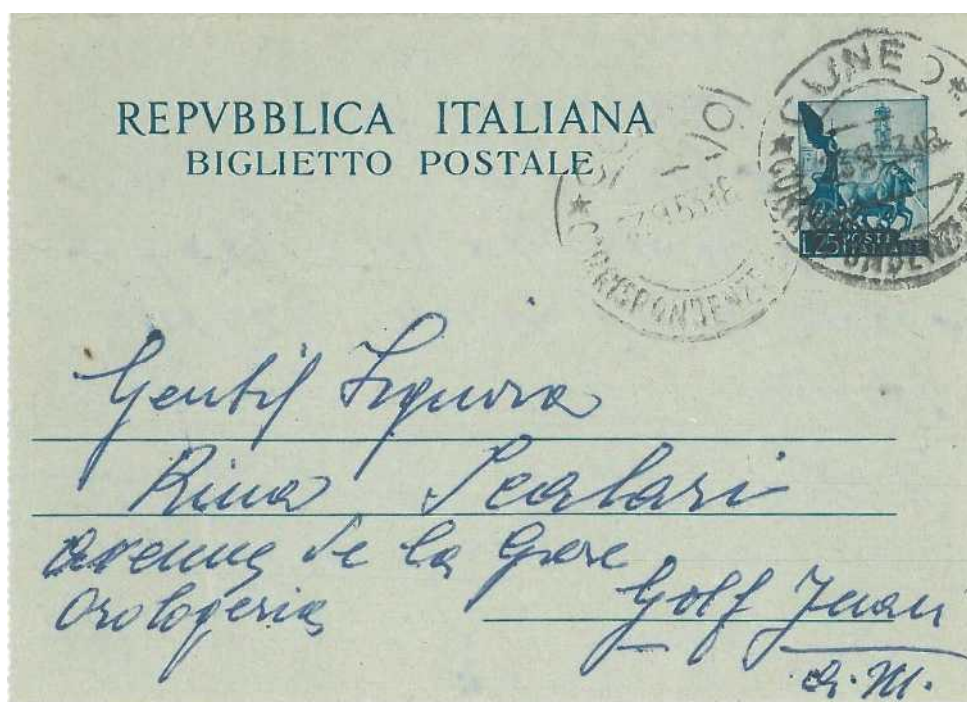 REPVBBLICA ITALIANA
BIGLIETTO POSTALE
CUNEO
CORRISPONDENZE
L.25 POSTE
Gentil Signora
Rina Scalari
Avenue de la Gare
Orologeria
Golf Juan
A. M.